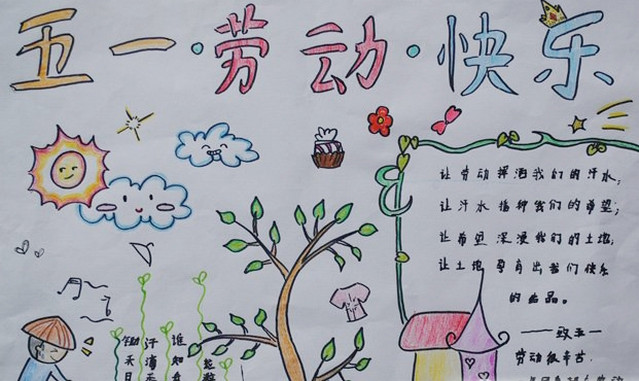 五一·劳动·快乐
让劳动挥洒我们的汗水，
让汗水播种我们的希望；
让希望深浸我们的土地；
让土地孕育出我们快乐
的出品。
——致五一
劳动很辛苦
谁知
汗滴禾